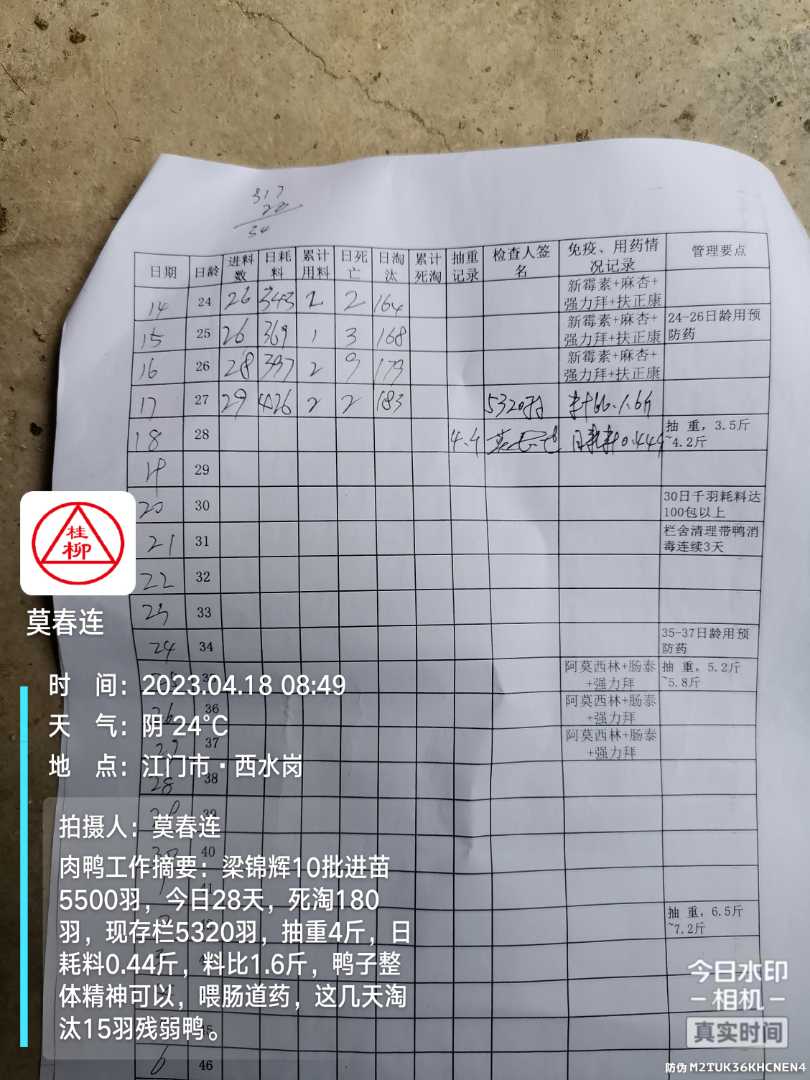 317
日期 日龄 进料数 日耗料 累计用料 日死亡 日淘汰 累计死淘 抽重记录 检查人签名 免疫、用药情况记录 管理要点
14 24 26 343 2 2 164 新霉素+麻杏+强力拜+扶正康
15 25 26 369 1 3 168 新霉素+麻杏+强力拜+扶正康 24-26日龄用预防药
16 26 28 397 2 9 173 新霉素+麻杏+强力拜+扶正康
17 27 29 426 2 2 183 5320羽
18 28 抽重，3.5斤~4.2斤
19 29
20 30 30日千羽耗料达100包以上
21 31 栏舍清理带鸭消毒连续3天
22 32
23 33
24 34 35-37日龄用预防药
阿莫西林+肠泰+强力拜 抽重，5.2斤~5.8斤
36 阿莫西林+肠泰+强力拜
37 阿莫西林+肠泰+强力拜
28 38
39
40
抽重，6.5斤~7.2斤
6 46
桂柳
莫春连
时 间：2023.04.18 08:49
天 气：阴 24℃
地 点：江门市·西水岗
拍摄人：莫春连
肉鸭工作摘要：梁锦辉10批进苗
5500羽，今日28天，死淘180
羽，现存栏5320羽，抽重4斤，日
耗料0.44斤，料比1.6斤，鸭子整
体精神可以，喂肠道药，这几天淘
汰15羽残弱鸭。
今日水印
相机
真实时间
防伪 M2TUK36KHCNEN4